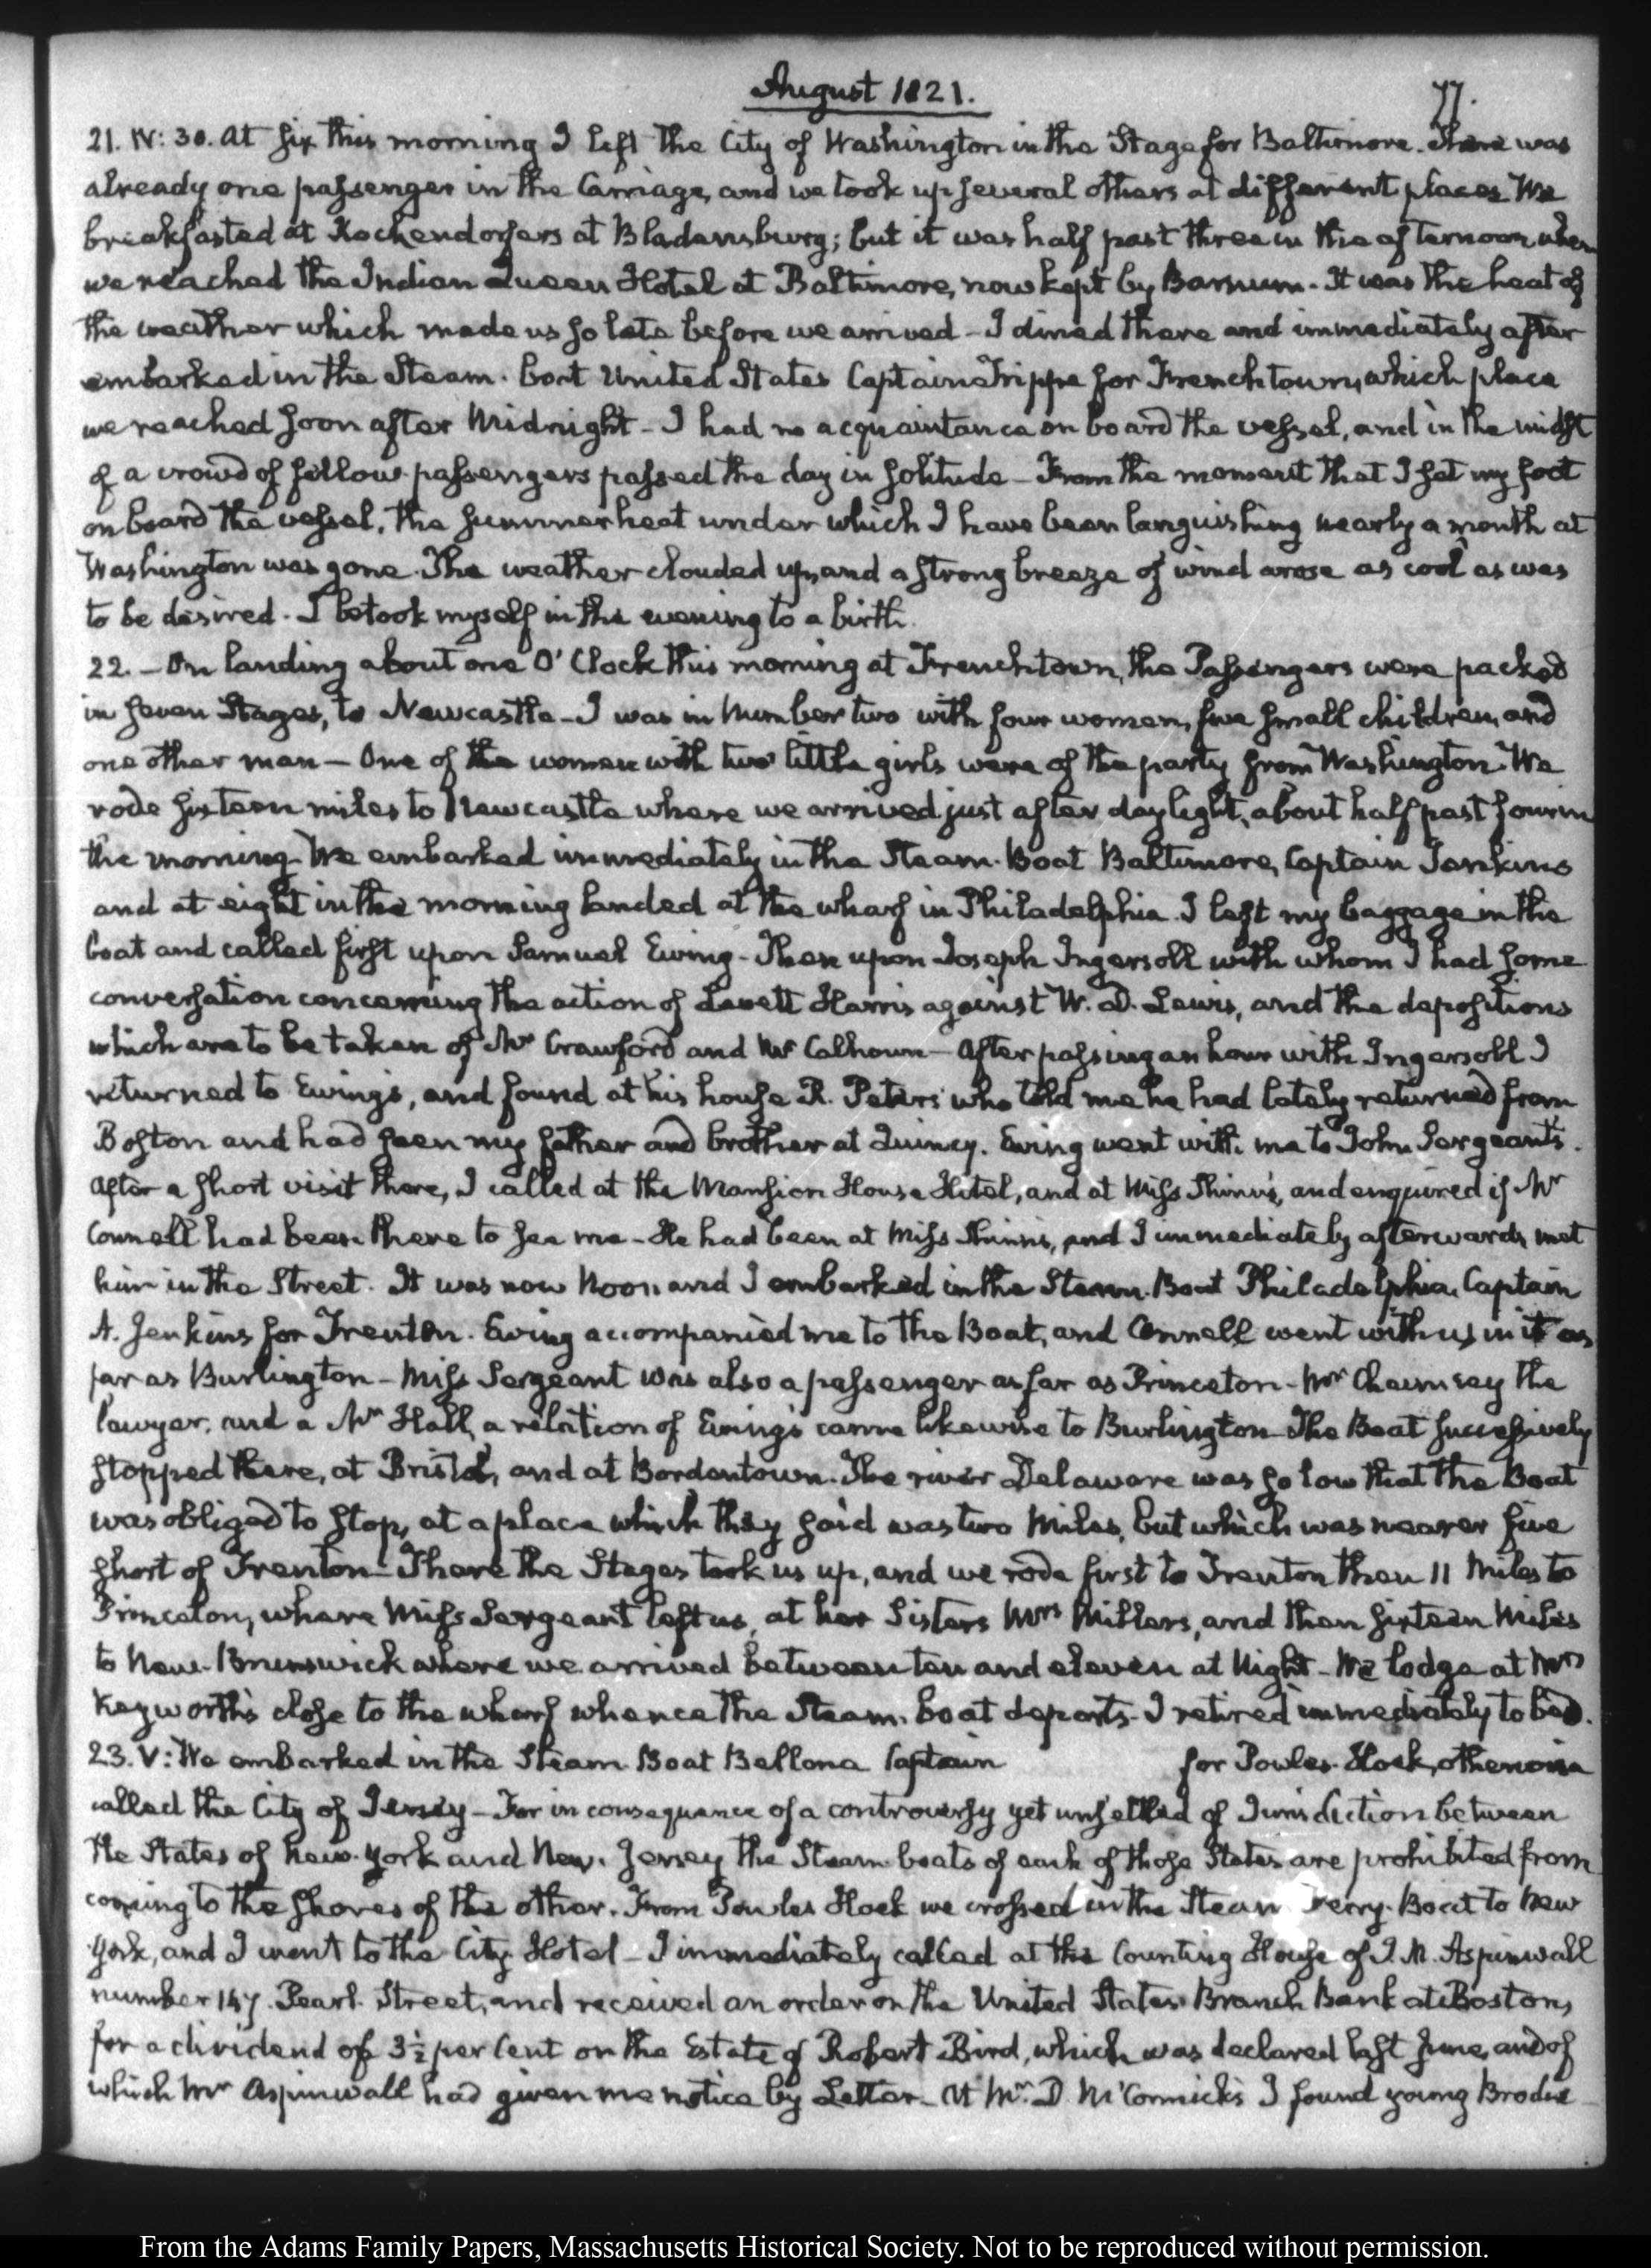 August 1821.
77.
21. IV: 30. At six this morning I left the City of Washington in the Stage for Baltimore. There was
already one passenger in the Carriage, and we took up several others at different places. We
breakfasted at Kochendorfers at Bladensburg; but it was half past three in the afternoon when
we reached the Indian Queen Hotel at Baltimore, now kept by Barnum. It was the heat of
the weather which made us so late before we arrived - I dined there and immediately after
embarked in the Steam-boat United States Captain Trippe for Frenchtown, which place
we reached soon after Midnight - I had no acquaintance on board the vessel, and in the midst
of a crowd of fellow passengers passed the day in solitude - From the moment that I set my foot
on board the vessel, the summer heat under which I have been languishing nearly a month at
Washington was gone. The weather clouded up, and a strong breeze of wind arose as cool as was
to be desired. I betook myself in the evening to a birth.
22. - On landing about one O'Clock this morning at Frenchtown, the Passengers were packed
in seven Stages, to Newcastle - I was in Number two with four women, five small children, and
one other man - One of the women with two little girls were of the party from Washington. We
rode sixteen miles to Newcastle where we arrived just after day light, about half past four in
the morning. We embarked immediately in the Steam-Boat Baltimore, Captain Jenkins
and at eight in the morning landed at the wharf in Philadelphia. I left my baggage in the
boat and called first upon Samuel Ewing - Then upon Joseph Ingersoll with whom I had some
conversation concerning the action of Levett Harris against W. D. Lewis, and the depositions
which are to be taken of Mr Crawford and Mr Calhoun - After passing an hour with Ingersoll I
returned to Ewing's, and found at his house R. Peters who told me he had lately returned from
Boston and had seen my father and brother at Quincy. Ewing went with me to John Sergeant's.
After a short visit there, I called at the Mansion House Hotel, and at Miss Shinn's, and enquired if Mr
Connell had been there to see me - He had been at Miss Shinn's, and I immediately afterwards met
him in the Street. It was now Noon and I embarked in the Steam-Boat Philadelphia, Captain
A. Jenkins for Trenton. Ewing accompanied me to the Boat, and Connell went with us in it as
far as Burlington - Miss Sergeant was also a passenger as far as Princeton - Mr Chauncey the
lawyer, and a Mr Hall, a relation of Ewing's came likewise to Burlington. The Boat successively
stopped there, at Bristol, and at Bordentown. The river Delaware was so low that the Boat
was obliged to stop, at a place which they said was two Miles, but which was nearer five
short of Trenton - There the Stages took us up, and we rode first to Trenton then 11 Miles to
Princeton, where Miss Sergeant left us, at her Sisters Mrs Millers, and then sixteen Miles
to New-Brunswick where we arrived between ten and eleven at Night - We lodge at Mrs
Keyworth's close to the wharf whence the Steam-boat departs - I retired immediately to bed.
23. V: We embarked in the Steam-Boat Bellona Captain for Powles-Hook, otherwise
called the City of Jersey - For in consequence of a controversy yet unsettled of Jurisdiction between
the States of New-York and New-Jersey the Steam-boats of each of those States are prohibited from
coming to the shores of the other. From Powles Hook we crossed in the Steam Ferry-Boat to New
York, and I went to the City Hotel - I immediately called at the Counting House of J. M. Aspinwall
number 147. Pearl-Street, and received an order on the United States Branch Bank at Boston,
for a dividend of 3½ per Cent on the Estate of Robert Bird, which was declared last June, and of
which Mr Aspinwall had given me notice by Letter - At Mr D. McCormick's I found young
From the Adams Family Papers, Massachusetts Historical Society. Not to be reproduced without permission.